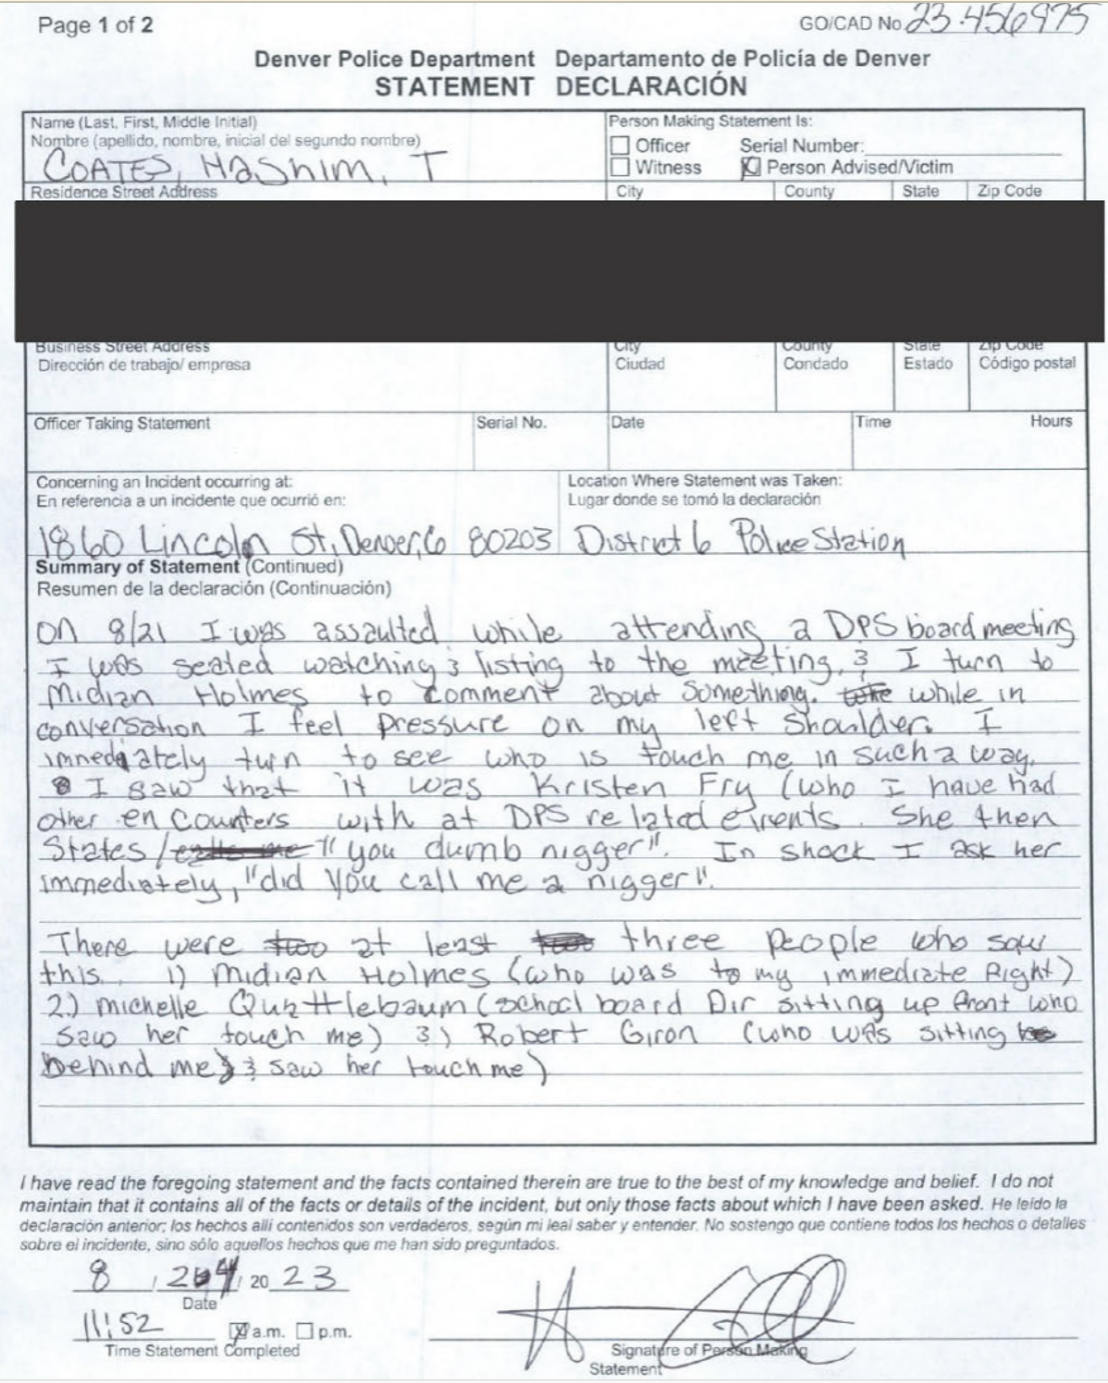 Page 1 of 2
GO/CAD No 23-456975
Denver Police Department Departamento de Policía de Denver
STATEMENT DECLARACIÓN
Name (Last, First, Middle Initial)
Nombre (apellido, nombre, inicial del segundo nombre)
COATES, Hashim, T
Person Making Statement Is:
Officer Serial Number:
Witness Person Advised/Victim
Residence Street Address City County State Zip Code
Business Street Address City County State Zip Code
Dirección de trabajo/ empresa Ciudad Condado Estado Código postal
Officer Taking Statement Serial No. Date Time Hours
Concerning an Incident occurring at:
En referencia a un incidente que ocurrió en:
Location Where Statement was Taken:
Lugar donde se tomó la declaración
1860 Lincoln St, Denver, Co 80203 District 6 Police Station
Summary of Statement (Continued)
Resumen de la declaración (Continuación)
On 8/21 I was assaulted while attending a DPS board meeting
I was seated watching & listing to the meeting, & I turn to
Midian Holmes to comment about something. while in
conversation I feel pressure on my left shoulder. I
immediately turn to see who is touch me in such a way.
I saw that it was Kristen Fry (who I have had
other encounters with at DPS related events. She then
States/ "you dumb nigger". In shock I ask her
immediately, "did you call me a nigger".
There were at least three people who saw
this. 1) Midian Holmes (who was to my immediate Right)
2.) Michelle Quattlebaum (school board Dir sitting up front who
saw her touch me) 3) Robert Giron (who was sitting
behind me & saw her touch me)
I have read the foregoing statement and the facts contained therein are true to the best of my knowledge and belief. I do not
maintain that it contains all of the facts or details of the incident, but only those facts about which I have been asked. He leído la
declaración anterior; los hechos allí contenidos son verdaderos, según mi leal saber y entender. No sostengo que contiene todos los hechos o detalles
sobre el incidente, sino sólo aquellos hechos que me han sido preguntados.
8 / 24 / 20 23
Date
11:52 a.m. p.m.
Time Statement Completed
Signature of Person Making
Statement